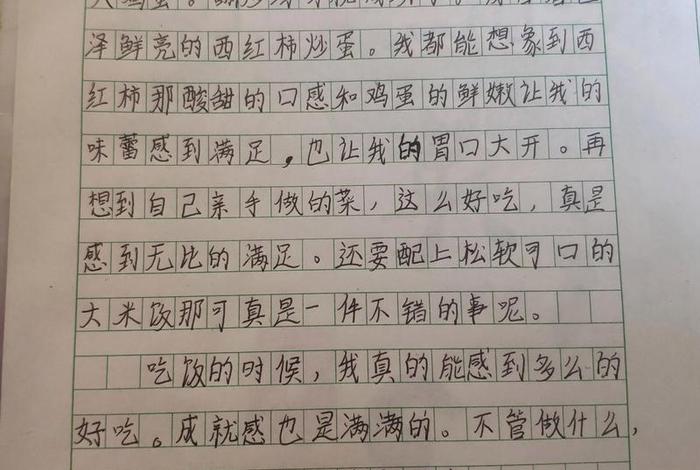 泽鲜亮的西红柿炒蛋。我都能想象到西
红柿那酸甜的口感和鸡蛋的鲜嫩让我的
味蕾感到满足，也让我的胃口大开。再
想到自己亲手做的菜，这么好吃，真是
感到无比的满足。还要配上松软可口的
大米饭那可真是一件不错的事呢。
吃饭的时候，我真的能感到多么的
好吃。成就感也是满满的。不管做什么，